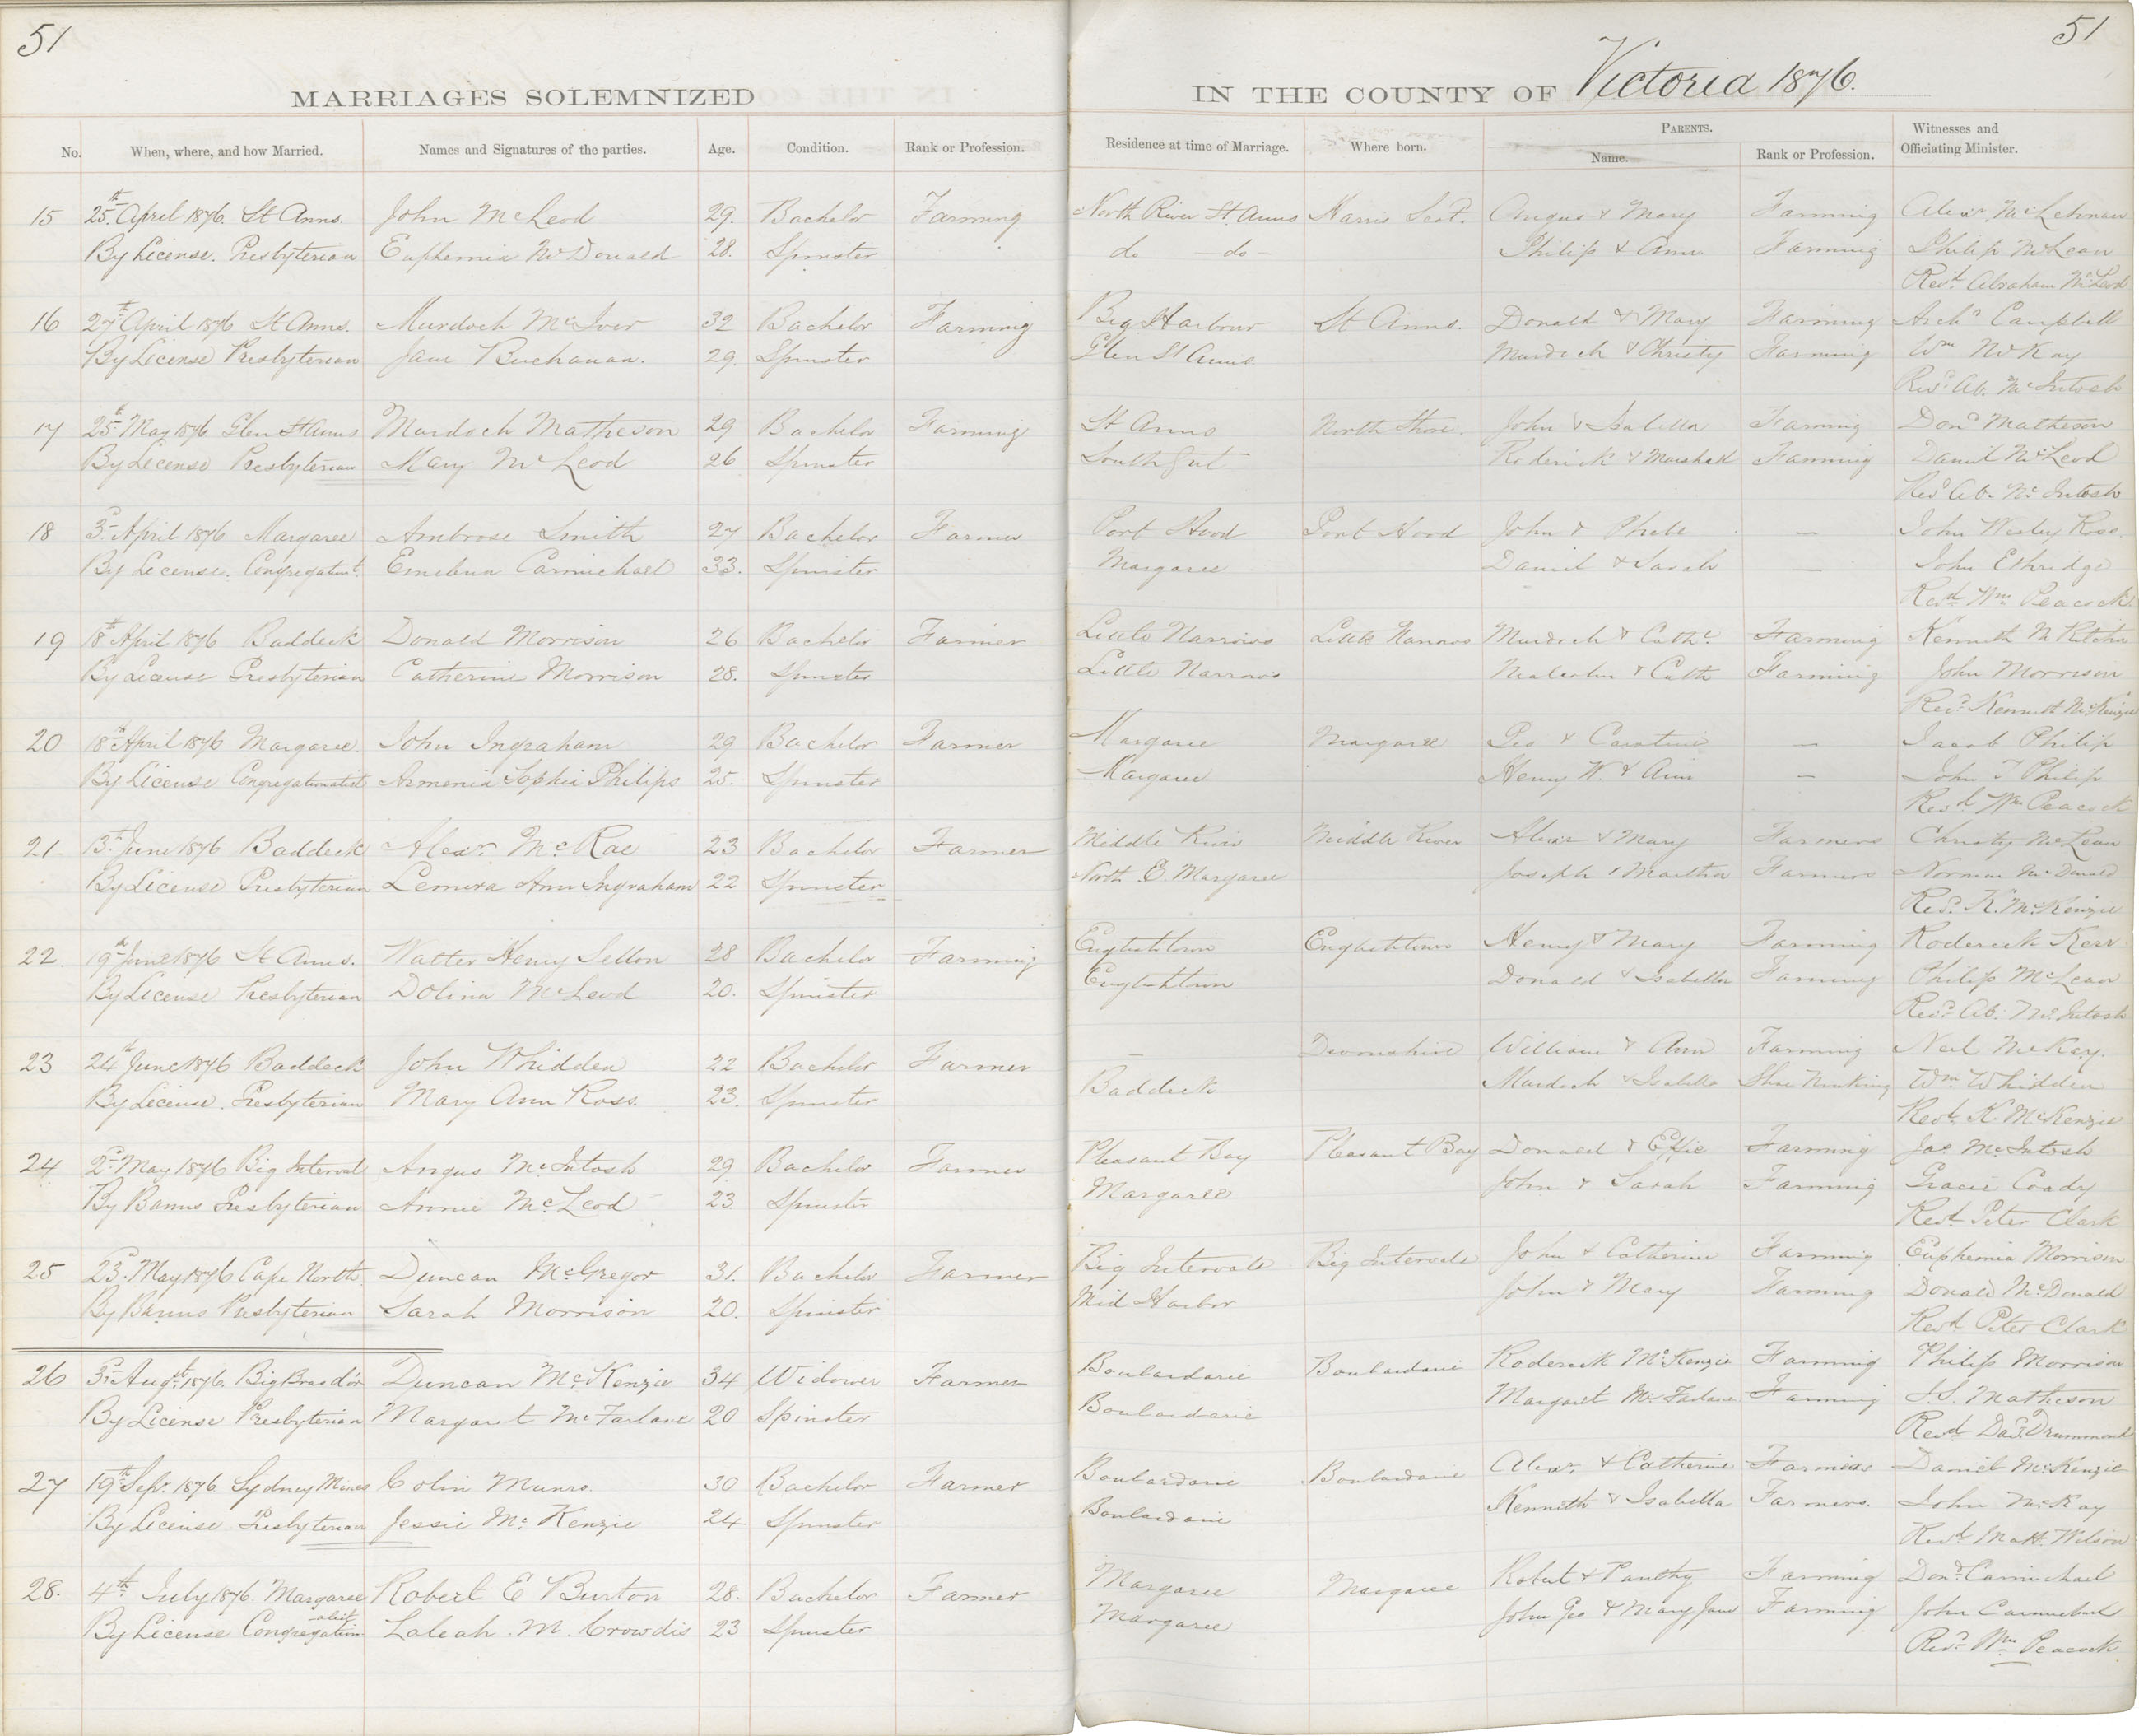 51
51
MARRIAGES SOLEMNIZED
IN THE COUNTY OF Victoria 1876.
No. When, where, and how Married. Names and Signatures of the parties. Age. Condition. Rank or Profession. Residence at time of Marriage. Where born. PARENTS. Name. Rank or Profession. Witnesses and Officiating Minister.
15 25th April 1876 St Anns. John McLeod 29. Bachelor Farming North River St. Anns Harris Scot. Angus & Mary Farming Alexr McLehnan
By License. Presbyterian Euphemia McDonald 28. Spinster do — do — Philip & Ann Farming Philip McLean
Revd. Abraham McLeod
16 27th April 1876 St Anns. Murdoch McIver 32 Bachelor Farming Big Harbour St Anns. Donald & Mary Farming Archd Campbell
By License Presbyterian Jane Buchanan. 29. Spinster Glen St Anns Murdoch & Christy Farming Wm McKay
Revd Ab. McIntosh
17 25th May 1876 Glen St Anns Murdoch Matheson 29 Bachelor Farming St Anns North Shore. John & Isabella Farming Dond Matheson
By License Presbyterian Mary McLeod 26 Spinster South Gut Roderick & Farming Daniel McLeod
Revd Ab. McIntosh
18 3d April 1876 Margaree Ambrose Smith 27 Bachelor Farmer Port Hood Port Hood John & Phebe — John Wesley Ross
By License. Congregationt. Emeluna Carmichael 33. Spinster Margaree Daniel & Sarah — John Ethridge
Revd Wm Peacock
19 18th April 1876 Baddeck Donald Morrison 26 Bachelor Farmer Little Narrows Little Narrows Murdoch & Cathe Farming Kenneth
By License Presbyterian Catherine Morrison 28. Spinster Little Narrows Malcolm & Cath Farming John Morrison
Revd Kenneth McKenzie
20 18th April 1876 Margaree. John Ingraham 29 Bachelor Farmer Margaree Margaree Geo & Caroline — Jacob Philip
By License Congregationalist Armenia Sophia Philips 25. Spinster Margaree Henry W. & Ann — John T Philip
Revd Wm Peacock
21 13th June 1876 Baddeck Alexr. McRae 23 Bachelor Farmer Middle River Middle River Alexr & Mary Farmers Christy McLean
By License Presbyterian Lemira Ann Ingraham 22 Spinster North E. Margaree Joseph & Martha Farmers Norman McDonald
Revd. K. McKenzie
22 19th June 1876 St Anns. Walter Henry Sellon 28 Bachelor Farming Englishtown Englishtown Henry & Mary Farming Roderick Kerr
By License Presbyterian Dolina McLeod 20. Spinster Englishtown Donald & Isabella Farming Philip McLean
Revd Ab. McIntosh
23 24th June 1876 Baddeck John Whidden 22 Bachelor Farmer — Devonshire William & Ann Farming Neil McKay.
By License. Presbyterian Mary Ann Ross. 23. Spinster Baddeck Murdoch & Isabella Shoe Making Wm Whidden
Revd. K. McKenzie
24 2d May 1876 Big Interval Angus McIntosh 29 Bachelor Farmer Pleasant Bay Pleasant Bay Donald & Effie Farming Jas McIntosh
By Banns Presbyterian Annie McLeod 23 Spinster Margaree John & Sarah Farming Gracie Coady
Revd. Peter Clark
25 23d May 1876 Cape North Duncan McGregor 31. Bachelor Farmer Big Intervale Big Intervale John & Catherine Farming Euphemia Morrison
By Banns Presbyterian Sarah Morrison 20. Spinster Mid Harbor John & Mary Farming Donald McDonald
Revd. Peter Clark
26 3d Augst. 1876. Big Bras d'or Duncan McKenzie 34 Widower Farmer Boulardarie Boulardarie Roderick McKenzie Farming Philip Morrison
By License Presbyterian Margaret McFarlane 20 Spinster Boulardarie Margaret McFarlane Farming J.S. Matheson
Revd. Dad. Drummond
27 19th Sepr. 1876 Sydney Mines Colin Munro. 30 Bachelor Farmer Boulardarie Boulardarie Alexr. & Catherine Farmers Daniel McKenzie
By License Presbyterian Jessie McKenzie 24 Spinster Boulardarie Kenneth & Isabella Farmers. John McKay
Revd Matt. Wilson
28. 4th July 1876. Margaree Robert E Burton 28. Bachelor Farmer Margaree Margaree Robert & Farming Dond. Carmichael
By License Congregationalist Laleah M. Crowdis 23 Spinster Margaree John Geo & Mary Jane Farming John Carmichael
Revd. Wm Peacock